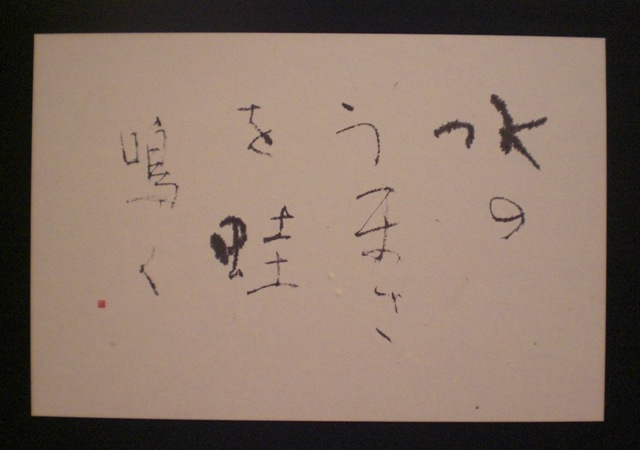 水の
うまさ
を蛙
鳴く